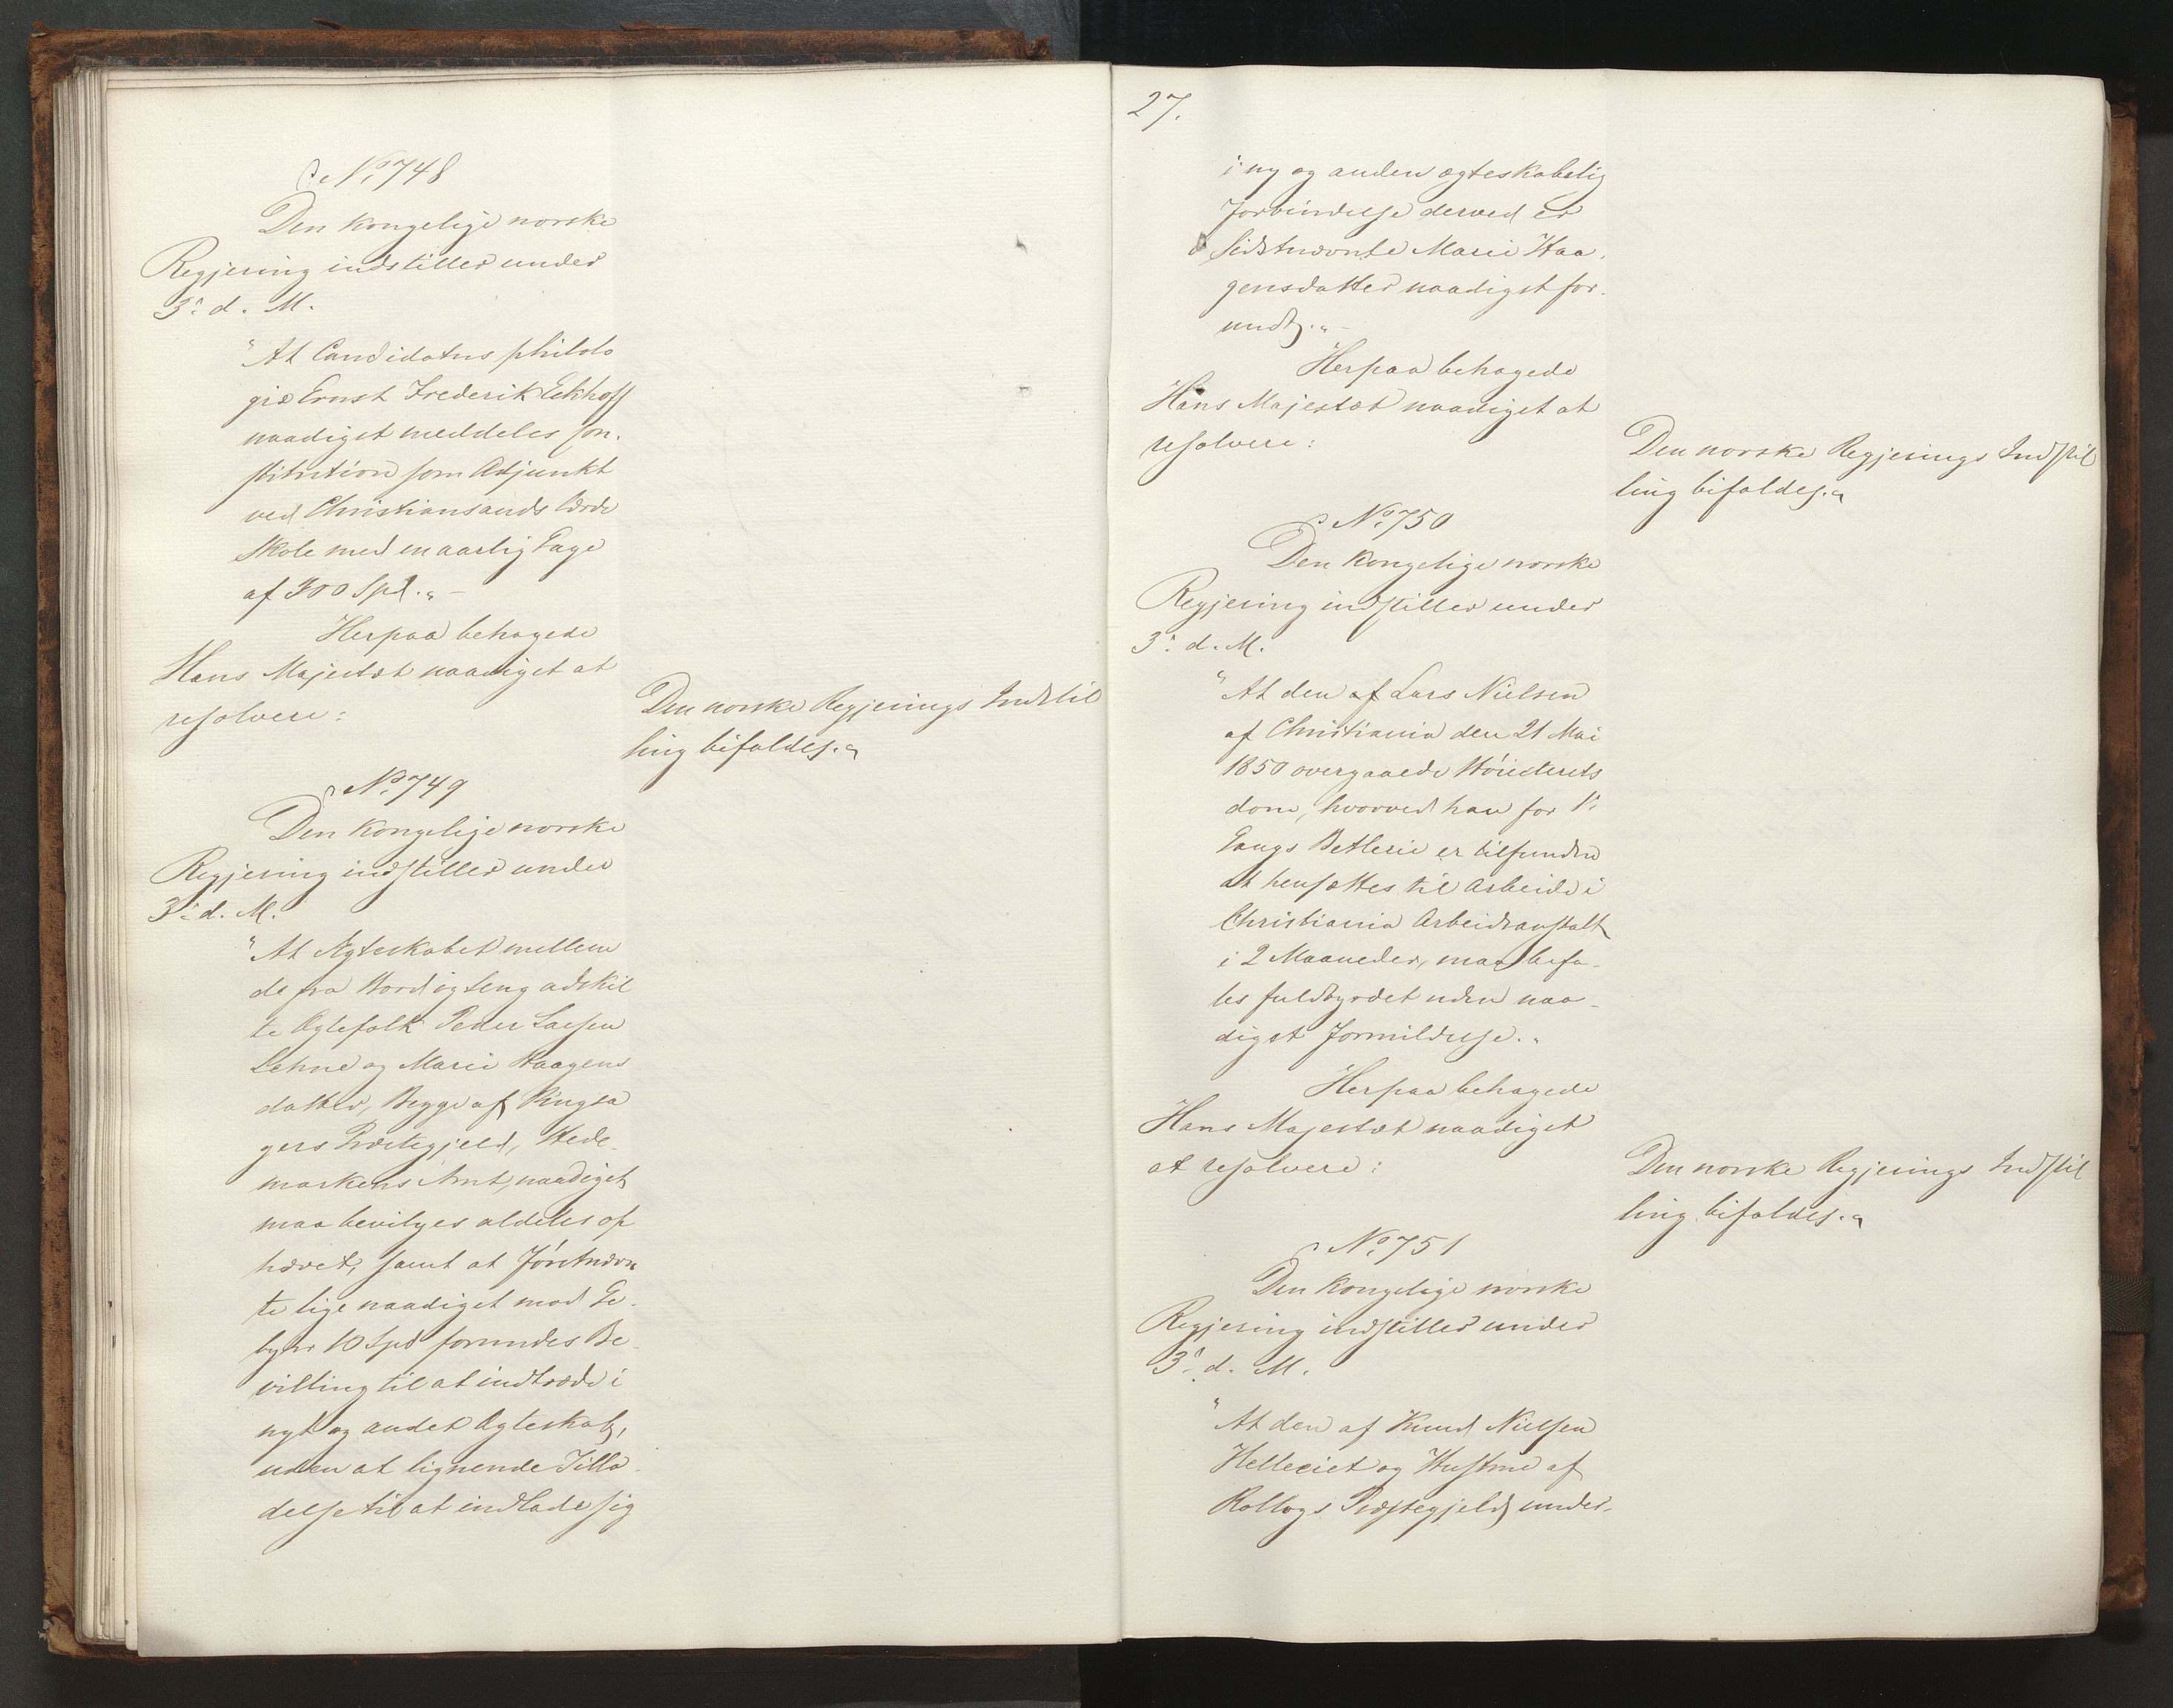 No 748
Den kongelige norske
Regjering indstiller under
3: d. M.
"At Candidatus philolo
giæ Ernst Frederik Eckhoff
naadigst meddeles Con-
stitution som Adjunkt
ved Christiansands lærde
Skole med en aarlig Gage
af 300 Spd." –
Herpaa behagede
Hans Majestæt naadigst at
resolvere:
Den norske Regjerings Indstil
ling bifaldes.
No 749
Den kongelige norske
Regjering indstiller under
3: d. M.
"At Ægteskabet mellem
de fra Bord og Seng adskil
te Ægtefolk Peder Larsen
Lehne og Marie Haagens
datter, Begge af Ringsa
gers Præstegjeld, Hede-
markens Amt, naadigst
maa bevilges aldeles op
hævet, samt at Førstnævn
te lige naadigst mod Ge-
byhr 10 Spd forundes Be-
villing til at indtræde i
nyt og andet Ægteskab,
uden at lignende Tilla-
delse til at indlade sig
27.
i ny og anden ægteskabelig
Forbindelse derved er
Sidstnævnte Marie Haa-
gensdatter naadigst for-
undt." –
Herpaa behagede
Hans Majestæt naadigst at
resolvere:
Den norske Regjerings Indstil
ling bifaldes.
No 750
Den kongelige norske
Regjering indstiller under
3: d. M.
"At den af Lars Nielsen
af Christiania den 21 Mai
1850 overgaaede Høiesterets
dom, hvorved han for 1:
Gangs Betlerie er tilfunden
at hensættes til Arbeide i
Christiania Arbeidsanstalt
i 2 Maaneder, maa befa-
les fuldbyrdet uden naa-
digst Formildelse."
Herpaa behagede
Hans Majestæt naadigst
at resolvere:
Den norske Regjerings Indstil
ling bifaldes.
No 751
Den kongelige norske
Regjering indstiller under
3: d. M.
"At den af Knud Nielsen
Helleeiet og Hustrue af
Rollags Præstegjeld under-